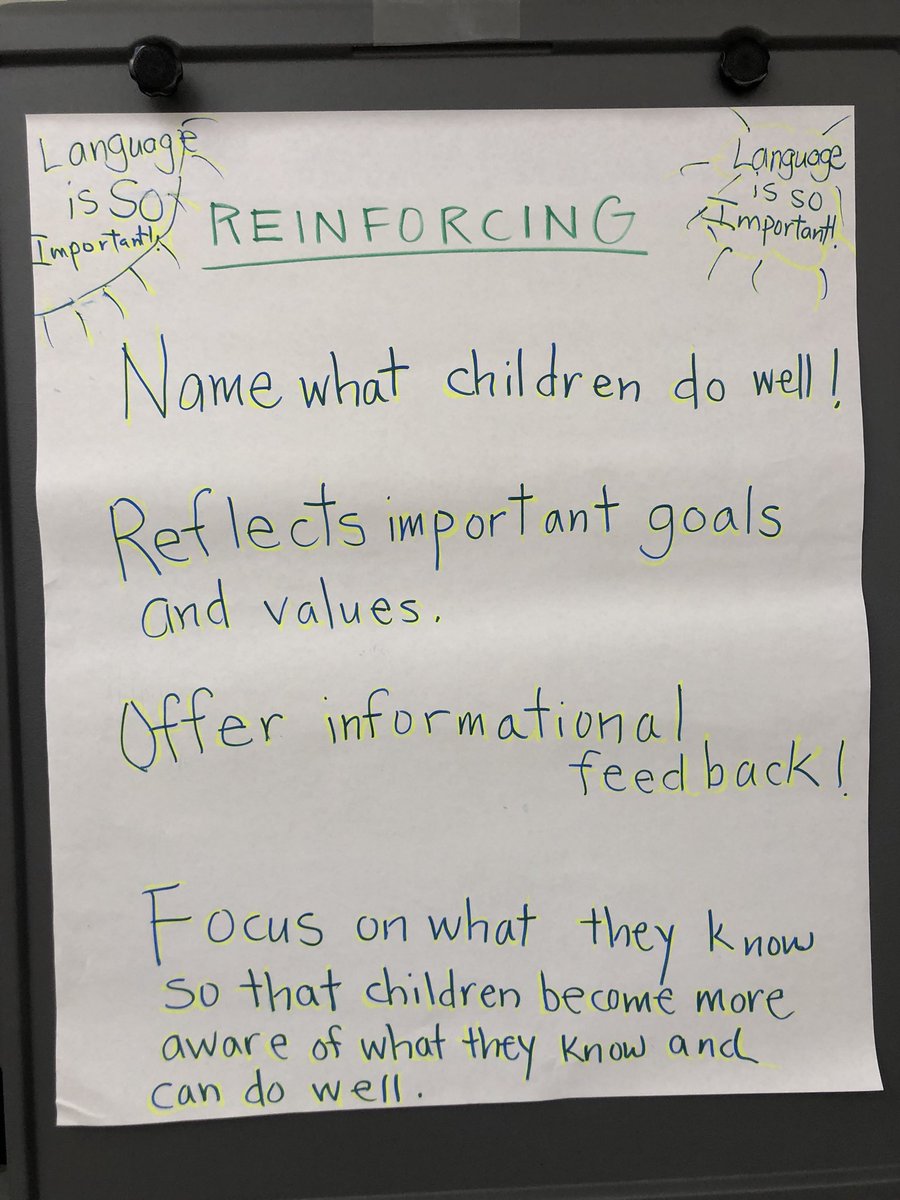 Language
is So
Important!
Language
is so
Important!
REINFORCING
Name what children do well!
Reflects important goals
and values.
Offer informational
feedback!
Focus on what they know
so that children become more
aware of what they know and
can do well.